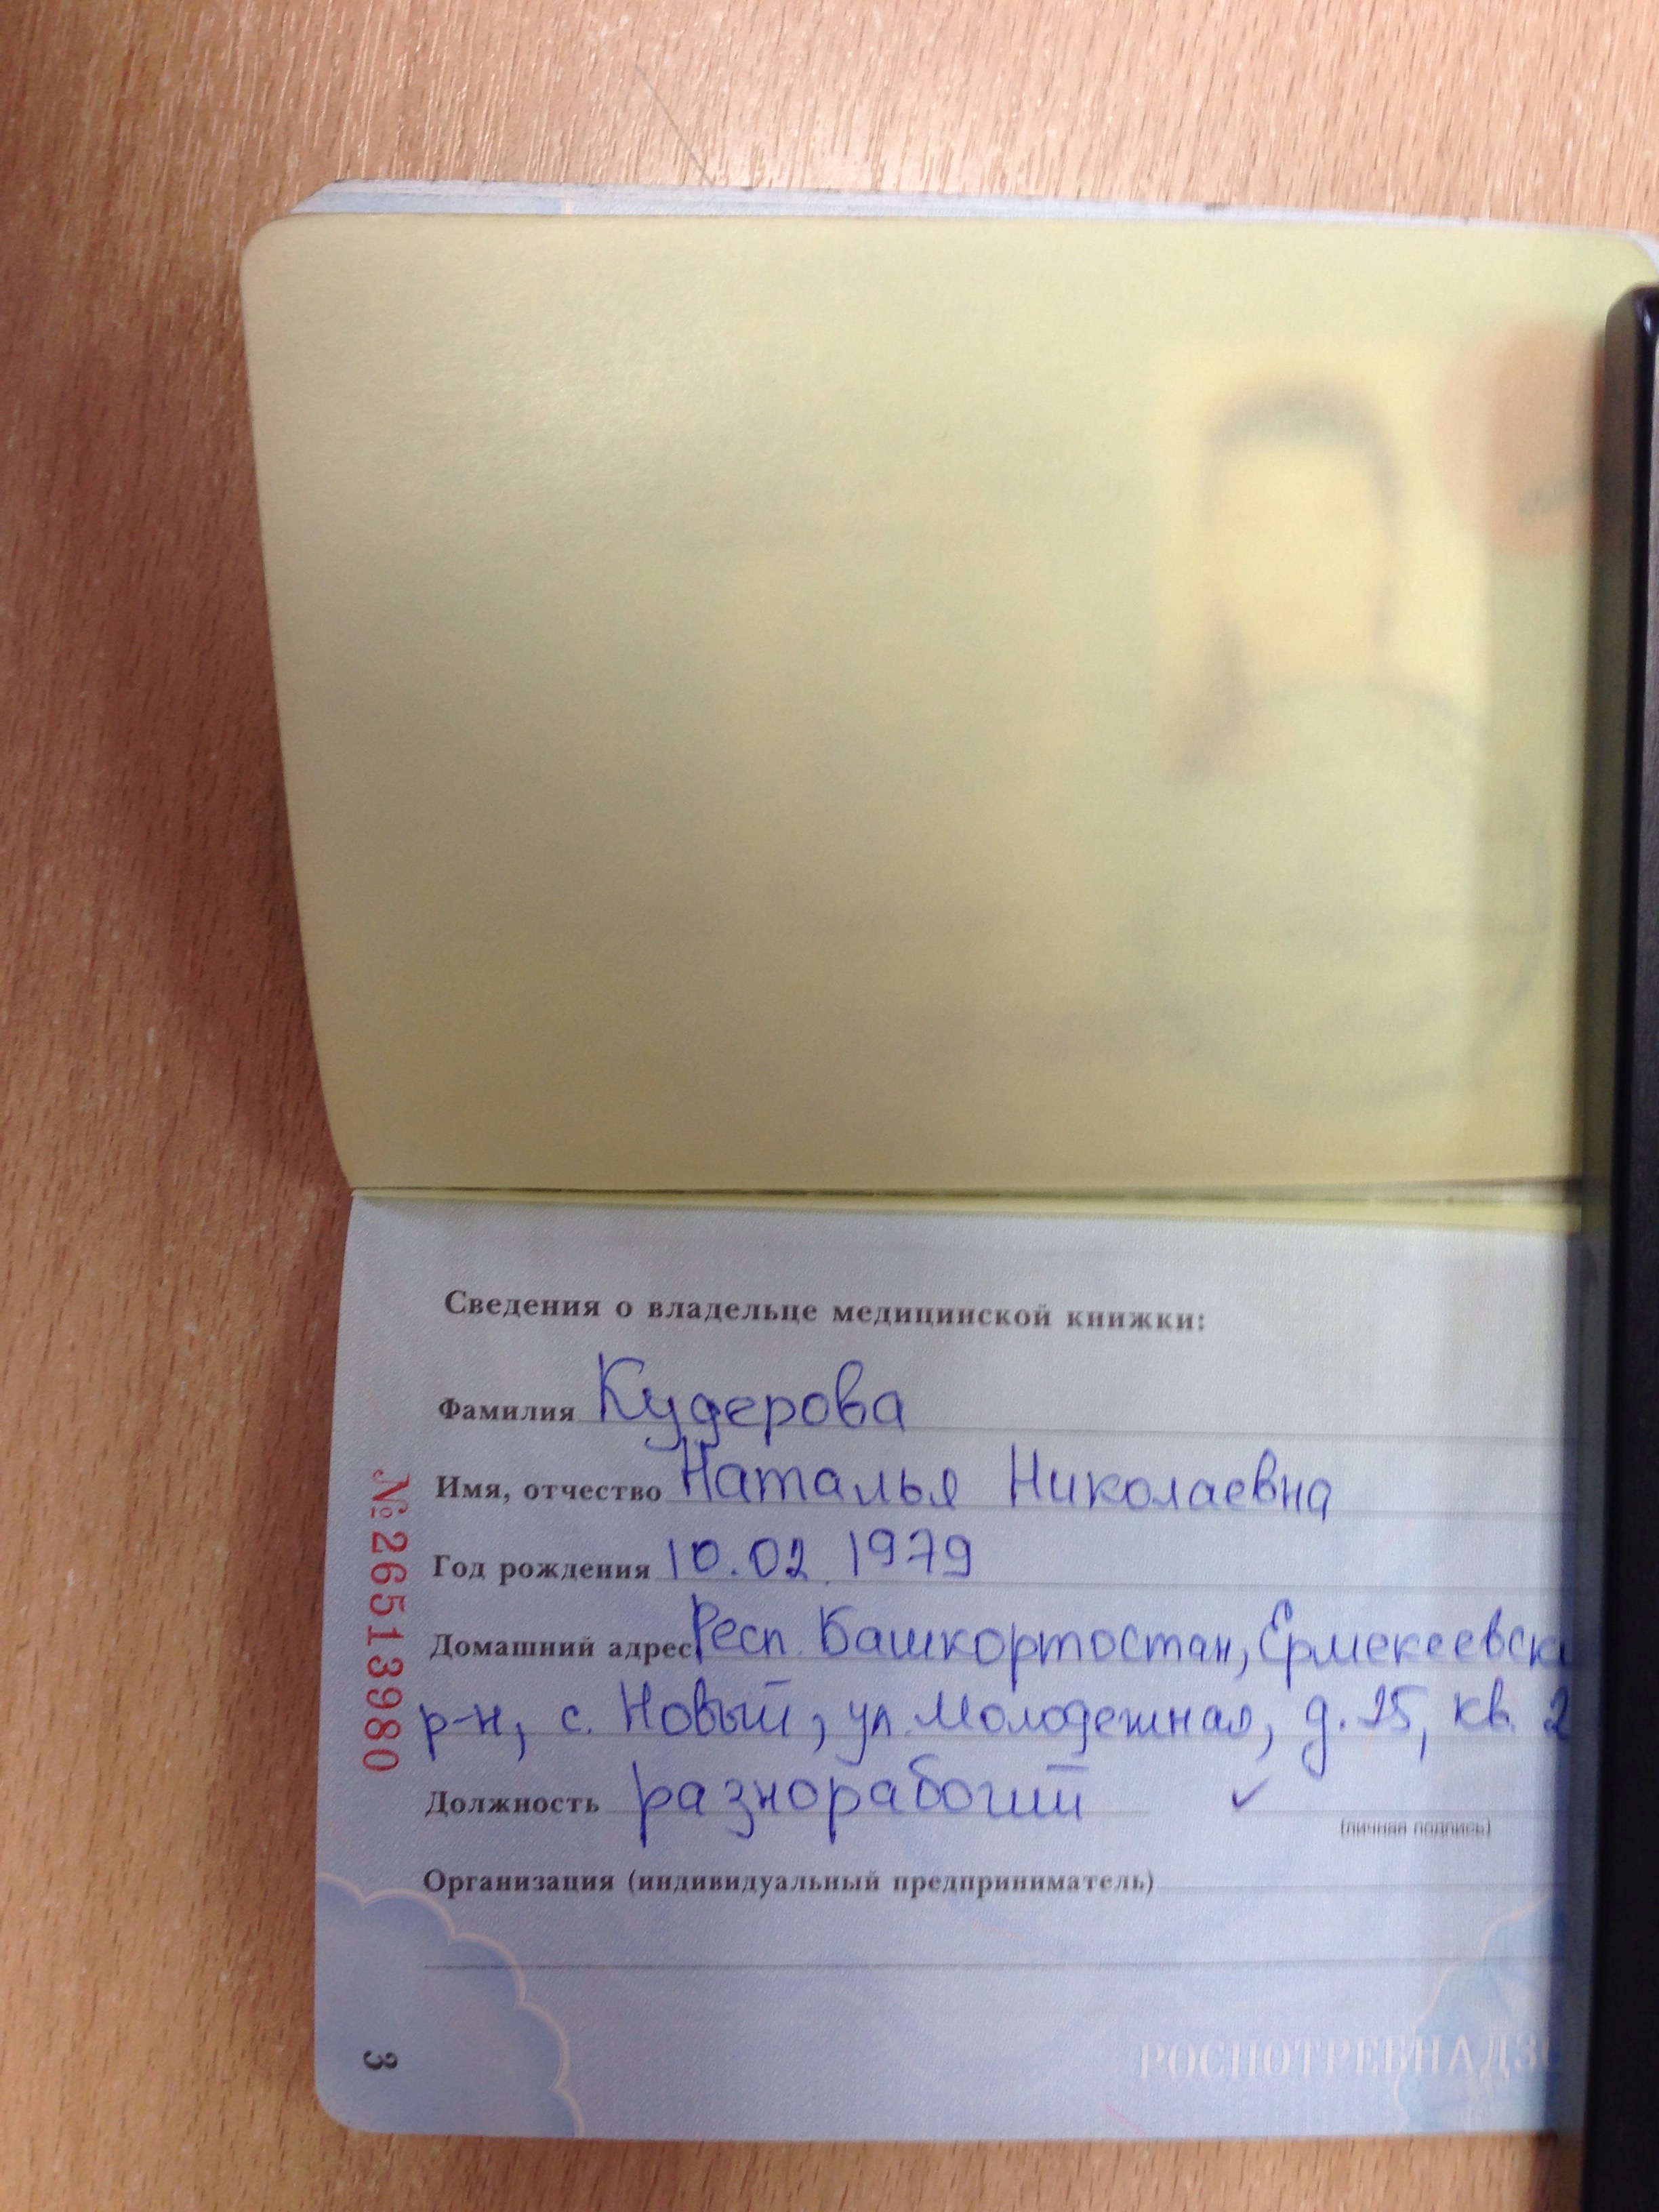 Сведения о владельце медицинской книжки:
Фамилия Кудерова
Имя, отчество Наталья Николаевна
Год рождения 10.02.1979
Домашний адрес Респ. Башкортостан, Ермекеевски
р-н, с. Новый, ул. Молодежная, д. 15, кв. 2
Должность разнорабочий ✓
(личная подпись)
Организация (индивидуальный предприниматель)
№26513980
РОСПОТРЕБНАДЗО
3